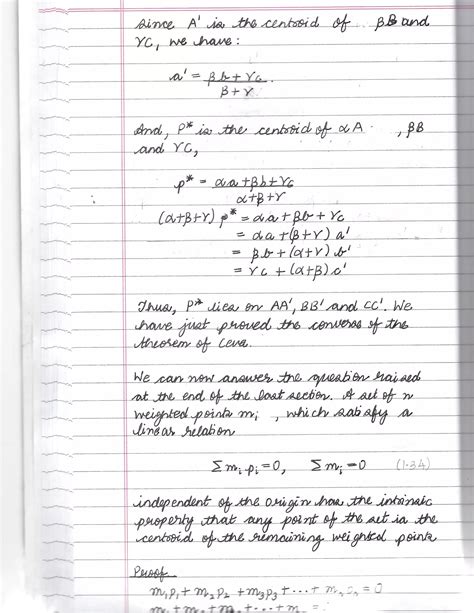 since A' is the centroid of βB and
γC, we have:
a' = βb + γc
β + γ
And, P* is the centroid of αA , βB
and γC,
p* = αa + βb + γc
α + β + γ
(α+β+γ) p* = αa + βb + γc
= αa + (β+γ) a'
= βb + (α+γ) b'
= γc + (α+β) c'
Thus, P* lies on AA', BB' and CC'. We
have just proved the converse of the
theorem of Ceva.
We can now answer the question raised
at the end of the last section. A set of n
weighted points mi , which satisfy a
linear relation
Σ mi pi = 0, Σ mi = 0 (1.34)
independent of the origin has the intrinsic
property that any point of the set is the
centroid of the remaining weighted points
Proof
m1p1 + m2p2 + m3p3 + ... + mnpn = 0
m1 + m2 + m3 + ... + mn =